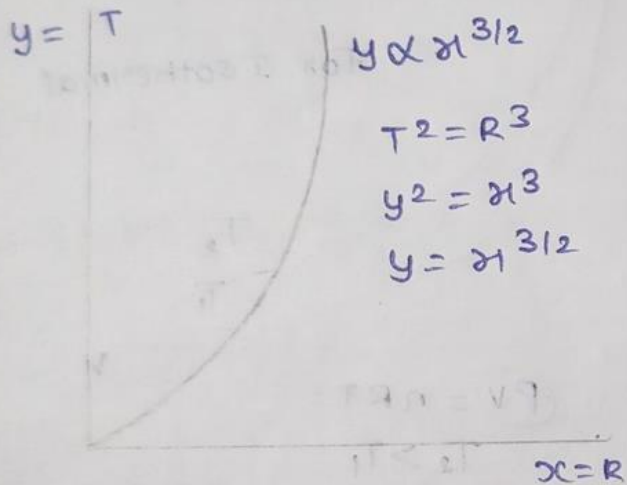 y = T
y ∝ x^3/2
T^2 = R^3
y^2 = x^3
y = x^3/2
x = R